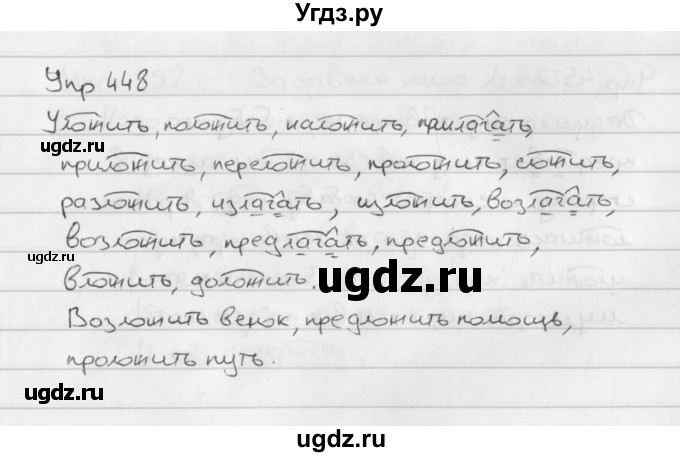 Угдз.ру
Упр 448
Уложить, положить, наложить, прилагать,
приложить, переложить, проложить, сложить,
разложить, излагать, изложить, возлагать,
возложить, предлагать, предложить,
вложить, доложить.
Возложить венок, предложить помощь,
проложить путь.
ugdz.ru
ugdz.ru
ugdz.ru
ugdz.ru
ugdz.ru
ugdz.ru
ugdz.ru